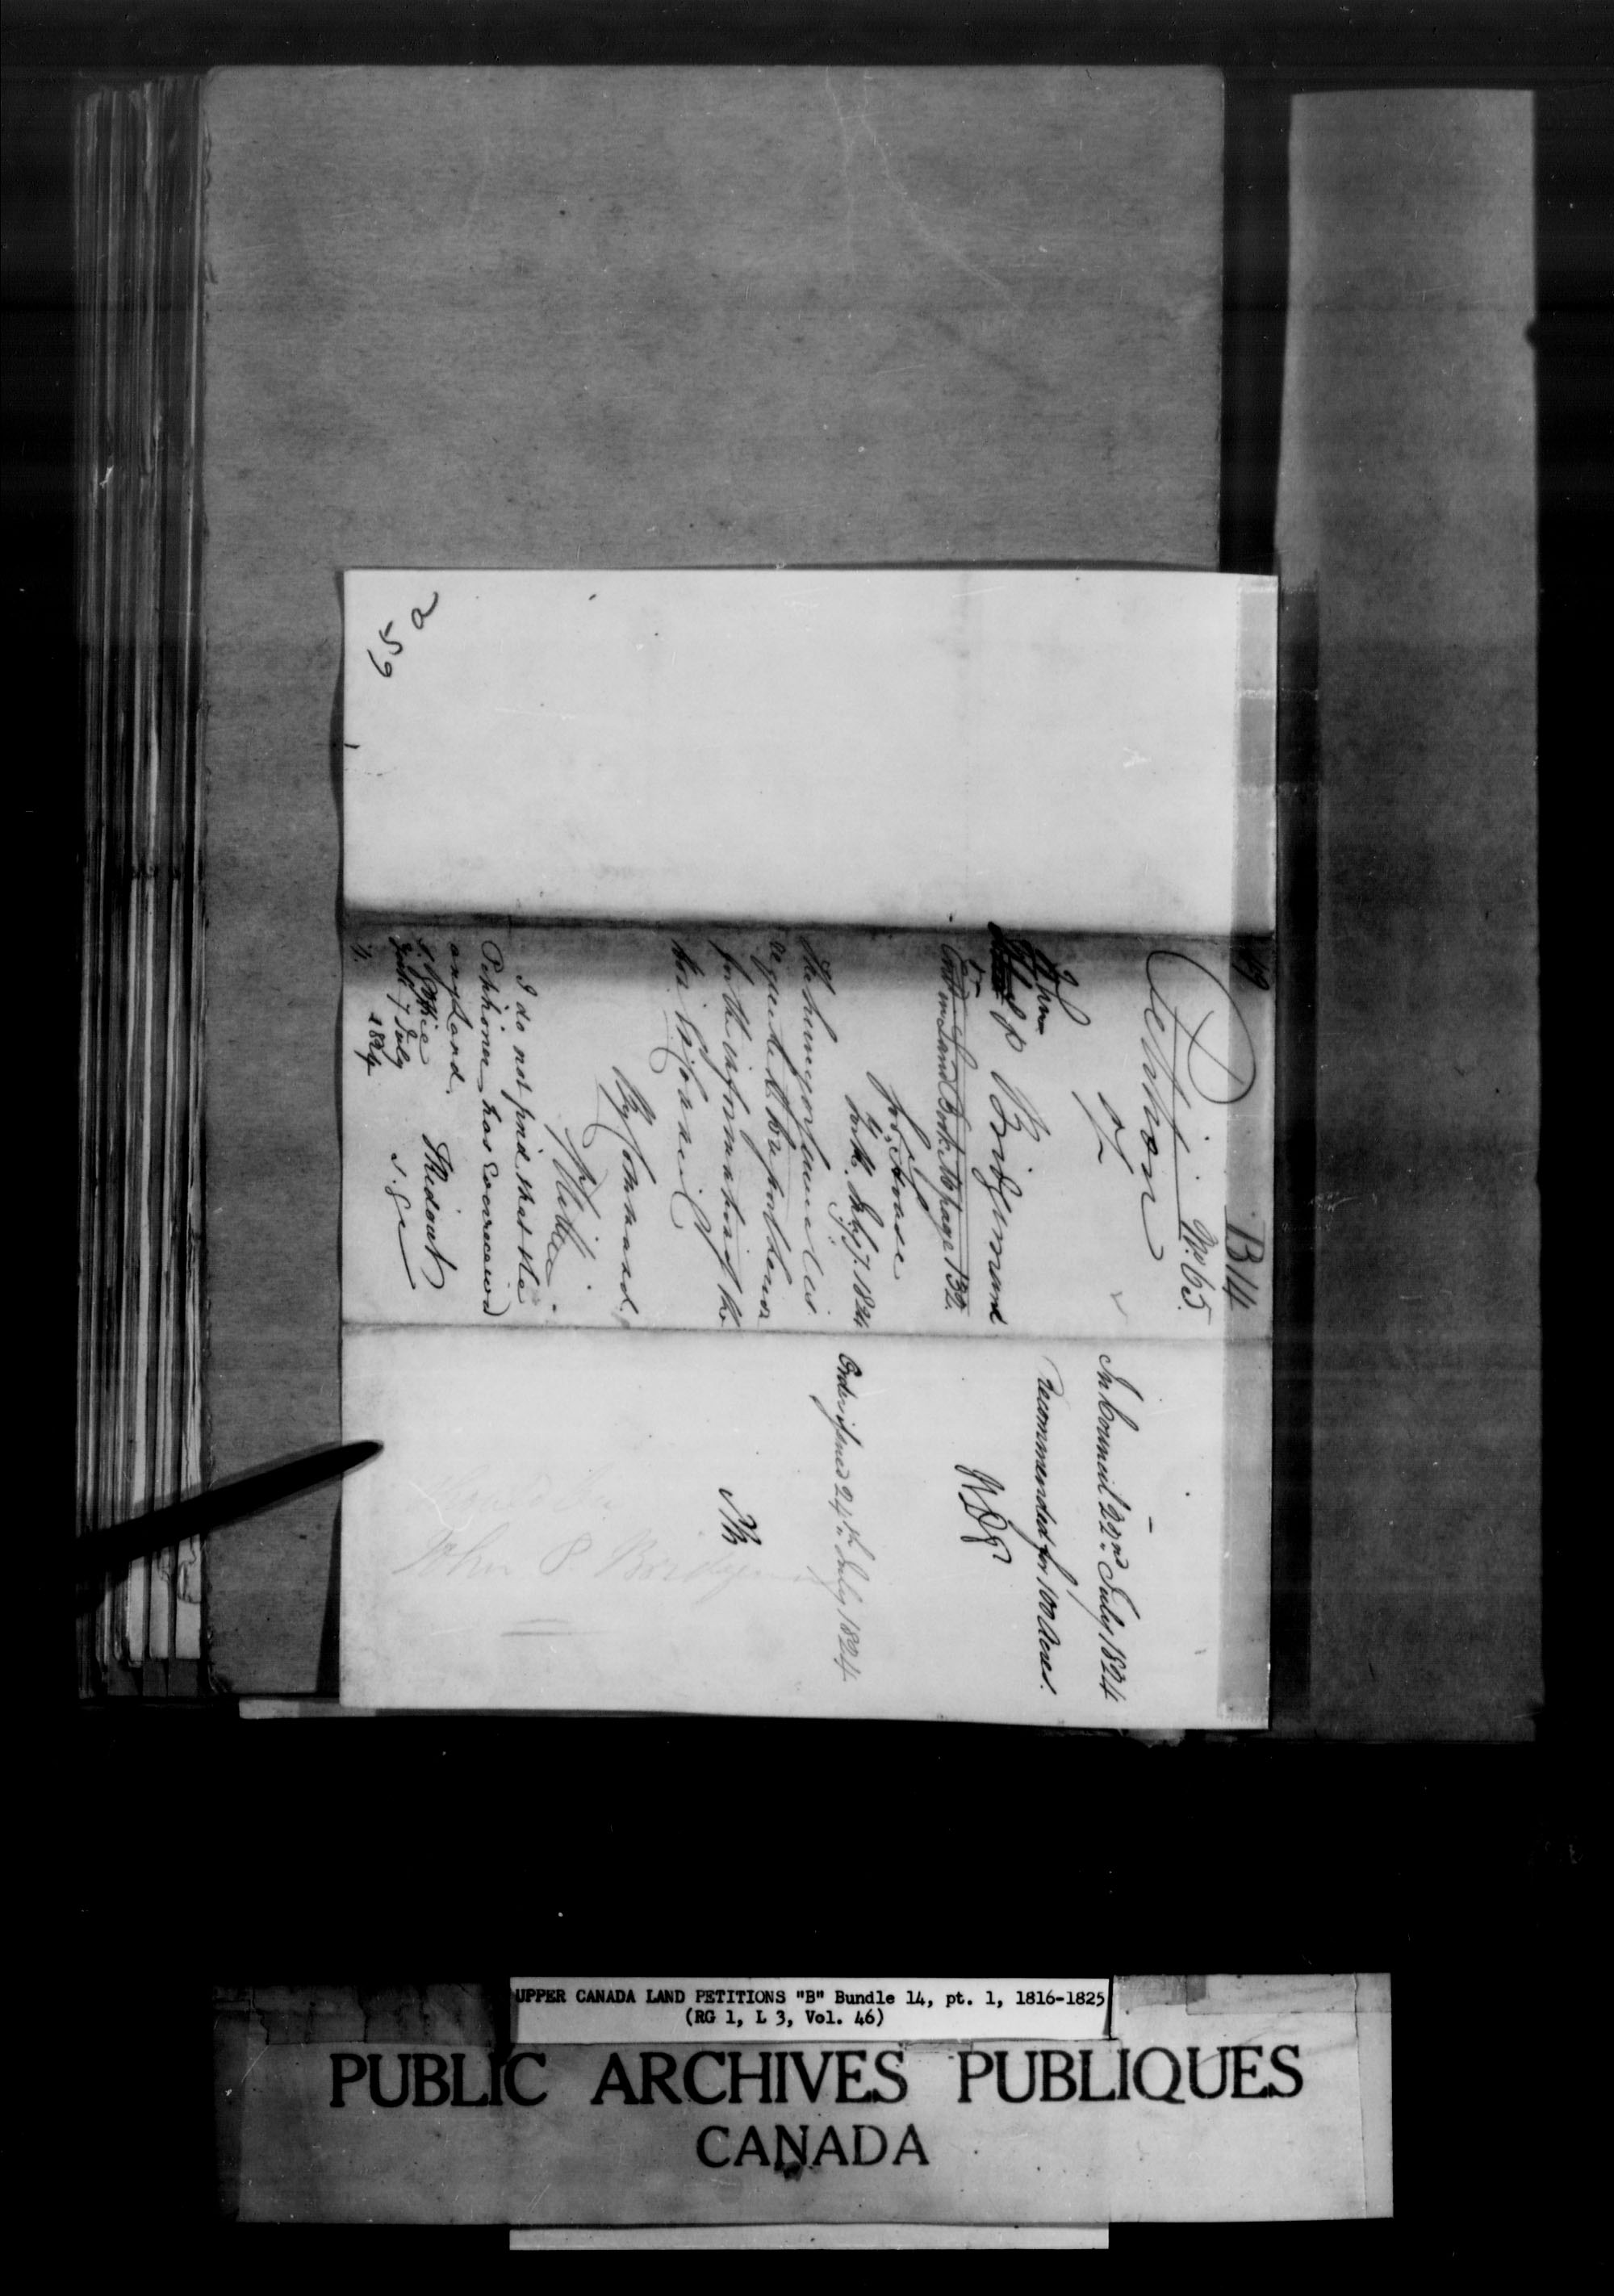 65a
49
B14
No 65.
Petition
of
John
P Bridgman
Ent.d in Land Book M page 132.
for
Y. House
York. July 7. 1824
The Surveyor General is
requested to put hereon
for the information of the
Hon. Ex. Council
By Command.
I do not find that the
Petitioner has Ever received
any Land.
S. G. Office
York 7 July
1824
T Ridout
S. G.
In Council 22nd July 1824
Recommended for 100 Acres.
Order issued 24th July 1824.
John P Bridgman
UPPER CANADA LAND PETITIONS "B" Bundle 14, pt. 1, 1816-1825
(RG 1, L 3, Vol. 46)
PUBLIC ARCHIVES PUBLIQUES
CANADA